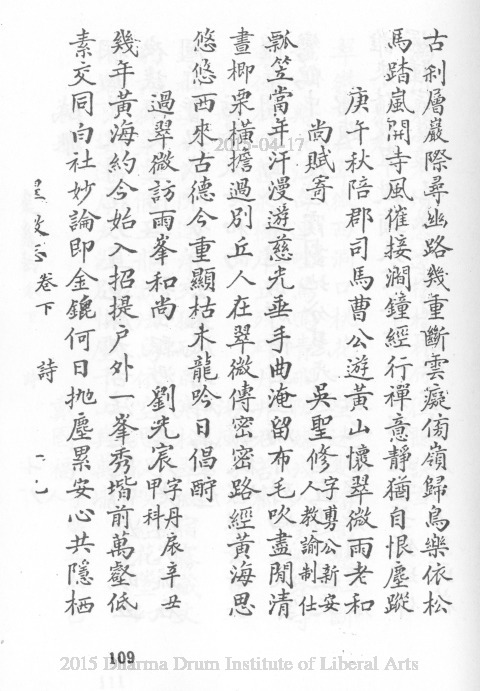 古刹層巖際尋幽路幾重斷雲癡傍嶺歸鳥樂依松
馬踏嵐開寺風催接澗鐘經行禪意靜猶自恨塵蹤
庚午秋陪郡司馬曹公遊黃山懷翠微雨老和
尚賦寄 吳聖修字勇公新安人教諭制仕
瓢笠當年汗漫遊慈光垂手曲淹留布毛吹盡閒清
晝楖栗橫擔過別丘人在翠微傳密密路經黃海思
悠悠西來古德今重顯枯木龍吟日倡酧
過翠微訪雨峯和尚 劉光宸字丹辰辛丑甲科
幾年黃海約今始入招提戶外一峯秀堦前萬壑低
素交同白社妙論即金鎞何日抛塵累安心共隱栖
卷下 詩
109
2015-04-17
2015 Dharma Drum Institute of Liberal Arts